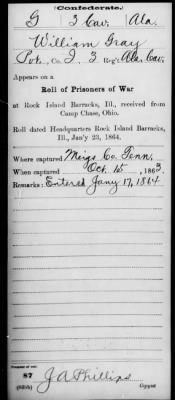 (Confederate.)
G 3 Cav. Ala.
William Gray
Pvt., Co. I, 3 Reg't Ala. Cav.
Appears on a
Roll of Prisoners of War
at Rock Island Barracks, Ill., received from
Camp Chase, Ohio.
Roll dated Headquarters Rock Island Barracks,
Ill., Jan'y 23, 1864.
Where captured Meigs Co. Tenn.
When captured Oct. 15, 1863.
Remarks: Entered Jany 17, 1864
Number of roll:
87
J A Phillips
Copyist.